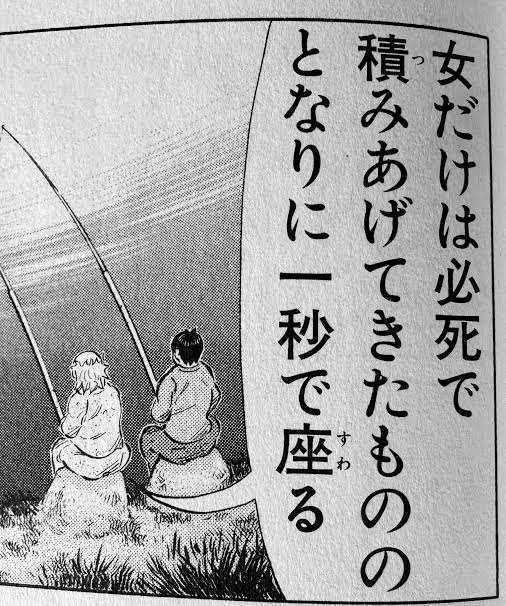 女だけは必死で
積みあげてきたものの
となりに一秒で座る
つ
すわ